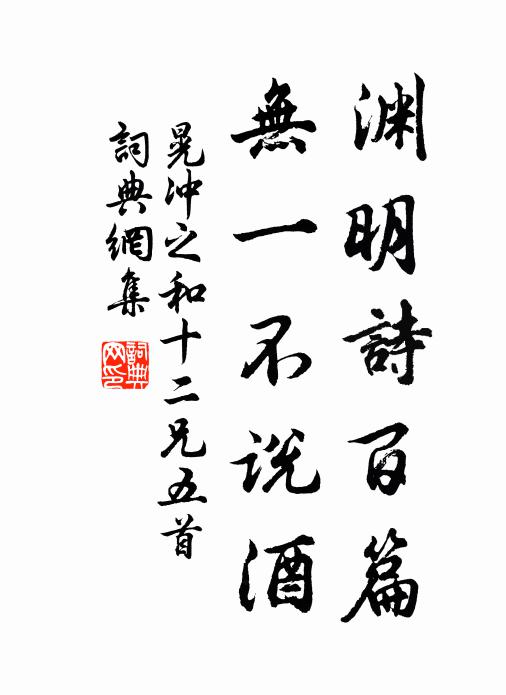 渊明詩百篇
無一不说酒
晁沖之和十二兄五首
詞典網集
詞典網印